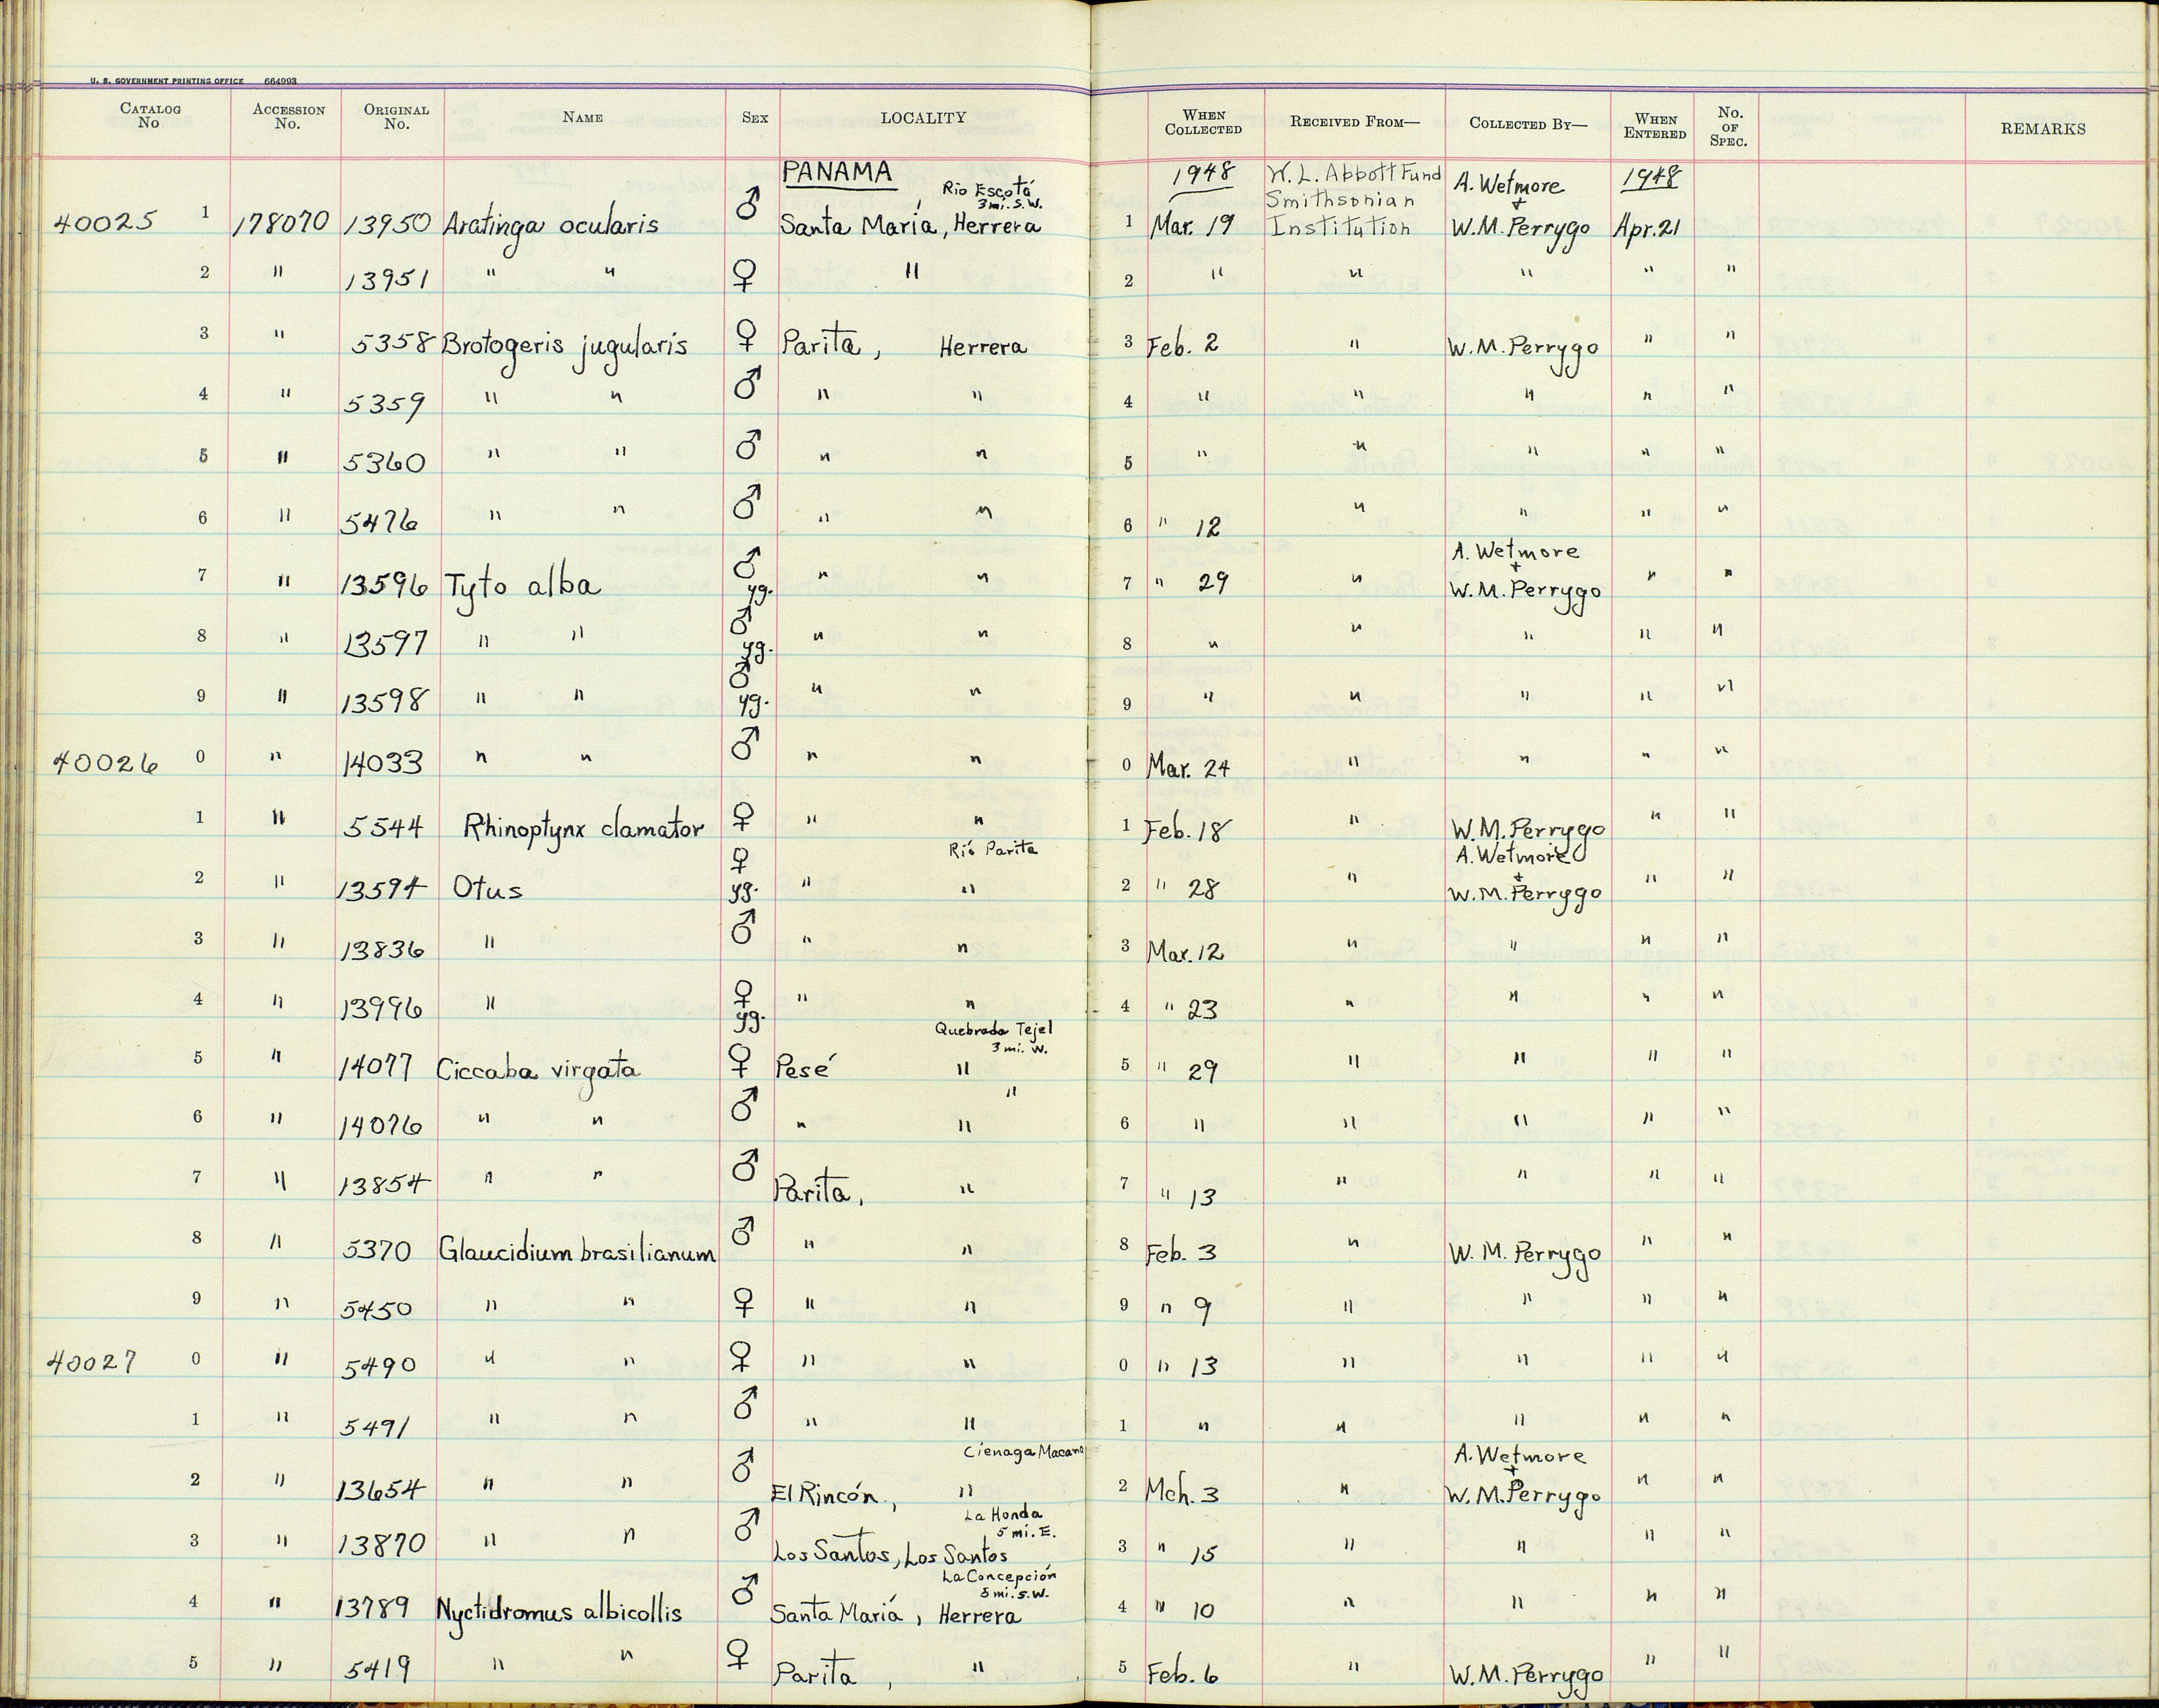 U. S. GOVERNMENT PRINTING OFFICE 664993
CATALOG No ACCESSION No. ORIGINAL No. NAME SEX LOCALITY WHEN COLLECTED RECEIVED FROM— COLLECTED BY— WHEN ENTERED No. OF SPEC. REMARKS
PANAMA 1948 W. L. Abbott Fund A. Wetmore 1948
Rio Escotá 3 mi. S.W. Smithsonian +
40025 1 178070 13950 Aratinga ocularis ♂ Santa María, Herrera 1 Mar. 19 Institution W.M. Perrygo Apr. 21
2 " 13951 " " ♀ " 2 " " " " "
3 " 5358 Brotogeris jugularis ♀ Parita, Herrera 3 Feb. 2 " W.M. Perrygo " "
4 " 5359 " " ♂ " " 4 " " " " "
5 " 5360 " " ♂ " " 5 " " " " "
6 " 5476 " " ♂ " " 6 " 12 " " " "
A. Wetmore +
7 " 13596 Tyto alba ♂ yg. " " 7 " 29 " W.M. Perrygo " "
8 " 13597 " " ♂ yg. " " 8 " " " " "
9 " 13598 " " ♂ yg. " " 9 " " " " "
40026 0 " 14033 " " ♂ " " 0 Mar. 24 " " " "
1 " 5544 Rhinoptynx clamator ♀ " " 1 Feb. 18 " W.M. Perrygo " "
Río Parita A. Wetmore +
2 " 13594 Otus ♀ yg. " " 2 " 28 " W.M. Perrygo " "
3 " 13836 " ♂ " " 3 Mar. 12 " " " "
4 " 13996 " ♀ yg. " " 4 " 23 " " " "
Quebrada Tejel 3 mi. W.
5 " 14077 Ciccaba virgata ♀ Pesé " 5 " 29 " " " "
"
6 " 14076 " " ♂ " " 6 " " " " "
7 " 13854 " " ♂ Parita, " 7 " 13 " " " "
8 " 5370 Glaucidium brasilianum ♂ " " 8 Feb. 3 " W. M. Perrygo " "
9 " 5450 " " ♀ " " 9 " 9 " " " "
40027 0 " 5490 " " ♀ " " 0 " 13 " " " "
1 " 5491 " " ♂ " " 1 " " " " "
Cienaga Macana A. Wetmore +
2 " 13654 " " ♂ El Rincón, " 2 Mch. 3 " W.M. Perrygo " "
La Honda 5 mi. E.
3 " 13870 " " ♂ Los Santos, Los Santos 3 " 15 " " " "
La Concepción 5 mi. S.W.
4 " 13789 Nyctidromus albicollis ♂ Santa Mariá, Herrera 4 " 10 " " " "
5 " 5419 " " ♀ Parita, " 5 Feb. 6 " W.M. Perrygo " "